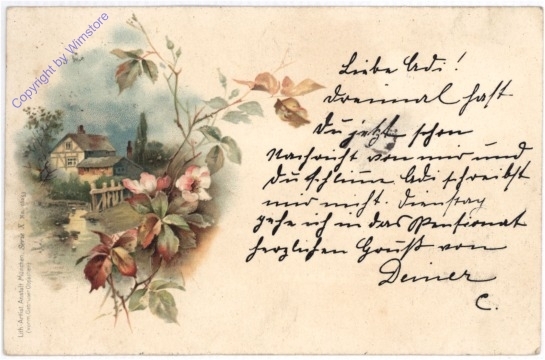 Liebe Adi!
Dreimal hast
Du jetzt schon
Nachricht von mir und
Du schlimme Adi schreibst
mir nicht. Dienstag
gehe ich in das Pensionat
herzlichen Gruß von
Deiner
C.
Copyright by Wimstore
Lith. Artist. Anstalt München, Serie X